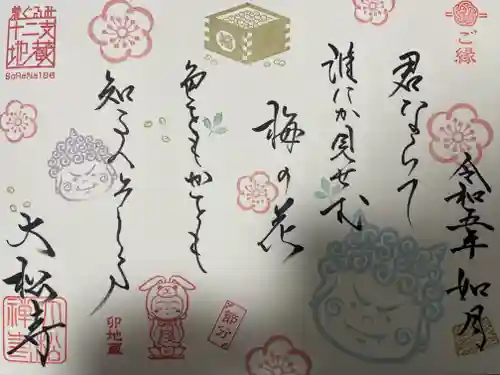 ご縁
令和五年 如月
君ならて
誰にか見せむ
梅の花
色をもかをも
知る人そしる
大松寺
着ぐるみ
十二支
地蔵
卯地蔵
節分